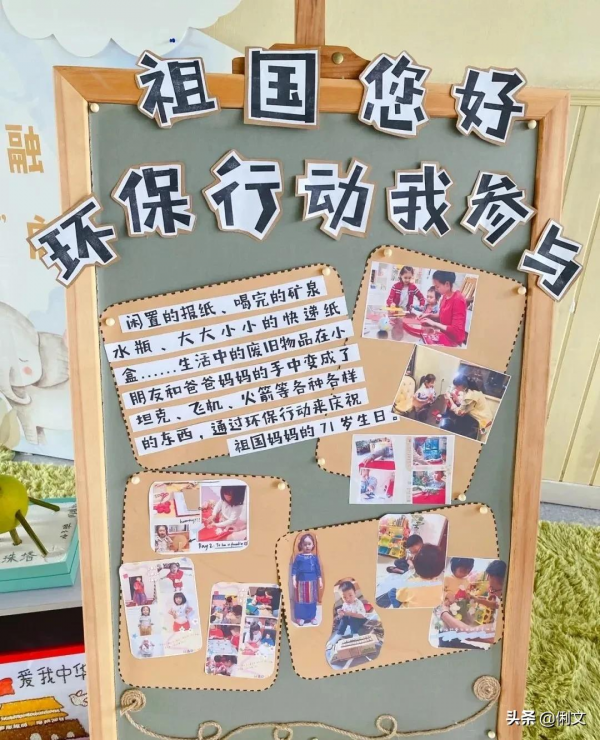 祖国您好
环保行动我参与
闲置的报纸、喝完的矿泉
水瓶、大大小小的快递纸
盒......生活中的废旧物品在小
朋友和爸爸妈妈的手中变成了
坦克、飞机、火箭等各种各样
的东西，通过环保行动来庆祝
祖国妈妈的71岁生日。
融
爱我中华
头条 @俐文